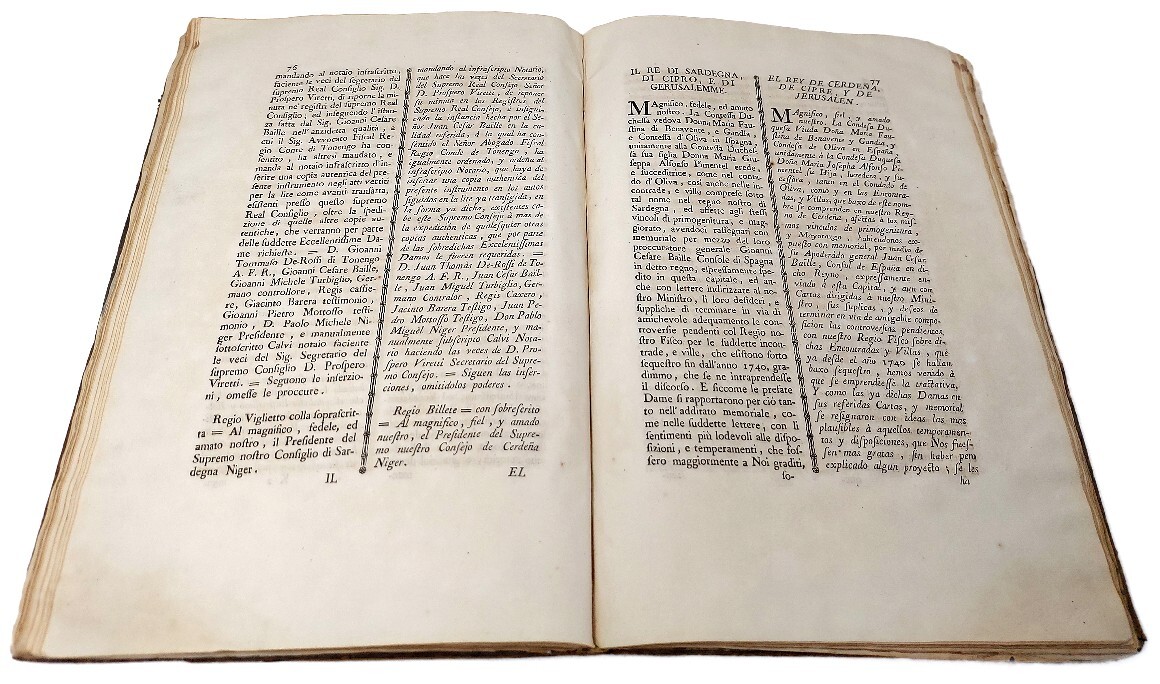 76
mandando al notaio infrascritto,
faciente le veci del segretario del
supremo Real Consiglio Sig. D.
Prospero Viretti, di riporne la mi-
nuta ne' registri del supremo Real
Consiglio, ed inseguendo l'istan-
za fatta dal Sig. Gioanni Cesare
Baille nell'anzidetta qualità, a
cui il Sig. Avvocato Fiscal Re-
gio Conte di Tonengo ha con-
sentito, ha altresì mandato, e
manda al notaio infrascritto d'in-
serire una copia autentica del pre-
sente instrumento negli atti vertiti
per la lite come avanti transatta,
essistenti presso questo supremo
Real Consiglio, oltre la spedi-
zione di quelle altre copie au-
tentiche, che verranno per parte
delle suddette Eccellentissime Da-
me richieste. = D. Gioanni
Tommaso De-Rossi di Tonengo
A. F. R., Gioanni Cesare Baille,
Gioanni Michele Turbiglio, Ger-
mano controllore, Regis cassie-
re, Giacinto Barera testimonio,
Gioanni Pietro Mottosso testi-
monio, D. Paolo Michele Ni-
ger Presidente, e manualmente
sottoscritto Calvi notaio faciente
le veci del Sig. Segretario del
supremo Consiglio D. Prospero
Viretti. = Seguono le inserzio-
ni, omesse le proccure.
Regio Viglietto colla soprascrit-
ta = Al magnifico, fedele, ed
amato nostro, il Presidente del
Supremo nostro Consiglio di Sar-
degna Niger.
IL
mandando al infrascripto Notario,
que hace las veces del Secretario
del Supremo Real Consejo Señor
D. Prospero Viretti, de reponer
su minuta en los Registros del
Supremo Real Consejo, è insiguien-
do la instancia hecha por el Se-
ñor Juan Cesar Baille en la ca-
lidad referida, à la qual ha con-
sentido el Señor Abogado Fiscal
Regio Conde de Tonengo, ha
igualmente ordenado, y ordena al
infrascripto Notario, que haya de
insertar una copia authentica del
presente instrumento en los autos
seguidos en la lite ya transigida, en
la forma ya dicha, existentes ca-
be este Supremo Consejo à mas de
la expedición de qualesquier otras
copias authenticas, que por parte
de las sobredichas Excelentissimas
Damas le fueren requeridas. =
D. Juan Thomàs De-Rossi de To-
nengo A. F. R., Juan Cesar Bail-
le, Juan Miguèl Turbiglio, Ger-
mano Contralor, Regis Caxero,
Jacinto Barera Testigo, Juan Pe-
dro Mottosso Testigo, Don Pablo
Miguèl Niger Presidente, y ma-
nualmente subscripto Calvi Nota-
rio haciendo las veces de D. Pro-
spero Viretti Secretario del Supre-
mo Consejo. = Siguen las inser-
ciones, omitidolos poderes.
Regio Billete = con sobreserito
= Al magnifico, fiel, y amado
nuestro, el Presidente del Supre-
mo nuestro Consejo de Cerdeña
Niger.
EL
IL RE DI SARDEGNA,
DI CIPRO, E DI
GERUSALEMME.
MAgnifico, fedele, ed amato
nostro. La Contessa Du-
chessa vedova Donna Maria Fau-
stina di Benavente, e Gandia,
e Contessa d'Oliva in Ispagna,
unitamente alla Contessa Duchessa
sua figlia Donna Maria Giu-
seppa Alfonso Pimentel erede,
e succeditrice, come nel conta-
do d'Oliva, così anche nelle in-
contrade, e ville comprese sotto
tal nome nel regno nostro di
Sardegna, ed affette agli stessi
vincoli di primogenitura, e mag-
giorato, avendoci rassegnati con
memoriale per mezzo del loro
proccuratore generale Gioanni
Cesare Baille Console di Spagna
in detto regno, espressamente spe-
dito in questa capitale, ed an-
che con lettere indirizzate al no-
stro Ministro, li loro desideri, e
suppliche di terminare in via di
amichevole adequamento le con-
troversie pendenti col Regio no-
stro Fisco per le suddette incon-
trade, e ville, che esistono sotto
sequestro fin dall'anno 1740, gra-
dimmo, che se ne intraprendesse
il discorso. E siccome le prefate
Dame si rapportarono per ciò tan-
to nell'additato memoriale, co-
me nelle suddette lettere, con li
sentimenti più lodevoli alle dispo-
sizioni, e temperamenti, che fos-
sero maggiormente a Noi graditi,
so-
77
EL REY DE CERDEÑA,
DE CIPRE, Y DE
JERUSALEN.
MAgnifico, fiel, y amado
nuestro. La Condesa Du-
quesa Viuda Doña Maria Fau-
stina de Benavente y Gandia, y
Condesa de Oliva en España,
unidamente à la Condesa Duquesa
Doña Maria Josepha Alfonso Pi-
mentel su Hija, heredera, y su-
cessora, tanto en el Condado de
Oliva, como en las Encontra-
das, y Villas, que baxo de este nom-
bre se comprenden en nuestro Rey-
no de Cerdeña, afectas à los mis-
mos vinculos de primogenitura,
y Mayorazgo, habiendonos ex-
puesto con memorial, por medio de
su Apoderado general Juan Cesar
Baille, Consul de España en di-
cho Reyno, expressamente en-
viado à esta Capital, y aun con
Cartas dirigidas à nuestro Mini-
stro, sus suplicas, y deseos de
terminar en via de amigable compo-
sicion las controversias pendientes,
con nuestro Regio Fisco sobre di-
chas Encontradas y Villas, que
ya desde el año 1740 se hallan
baxo sequestro, hemos venido à
que se emprendiesse la tractativa,
Y como las ya dichas Damas en
sus referidas Cartas, y memorial
se resignaron con ideas las mas
plausibles à aquellos temperamen-
tos y disposiciones, que Nos fues-
sen mas gratas, sin haber pero
explicado algun proyecto; se les
ha